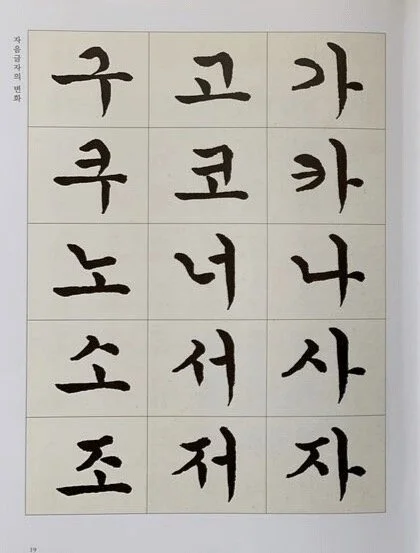 자음글자의 변화
구 고 가
쿠 코 카
노 너 나
소 서 사
조 저 자